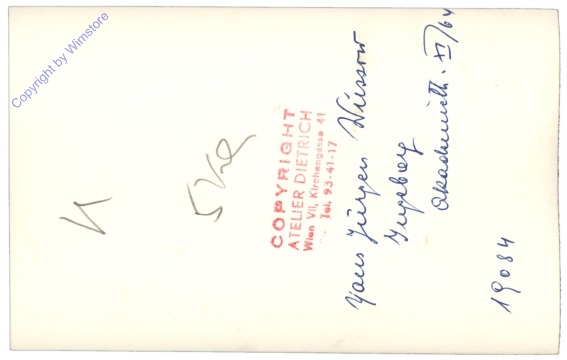 Copyright by Wimstore
K
COPYRIGHT
ATELIER DIETRICH
Wien VII, Kirchengasse 41
Tel. 93-41-17
Hans Jürgen Nissow
Ingeborg
XI/64
19084